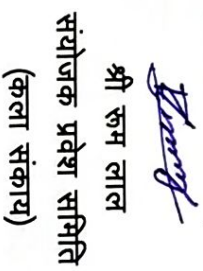 श्री रुम लाल
संयोजक प्रवेश समिति
(कला संकाय)